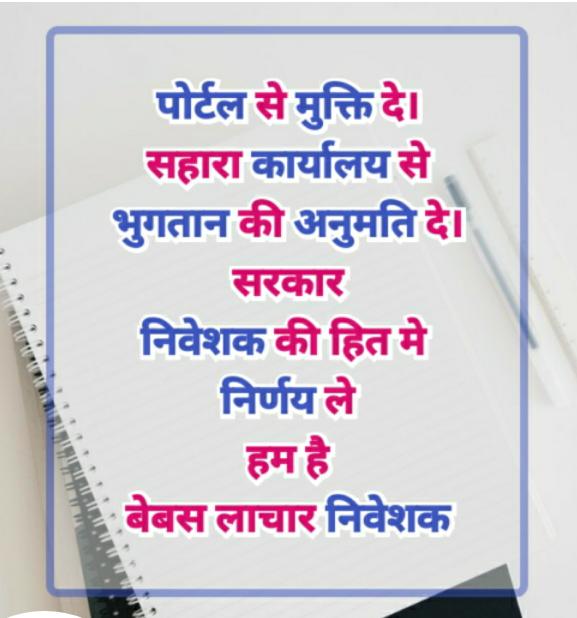 पोर्टल से मुक्ति दे।
सहारा कार्यालय से
भुगतान की अनुमति दे।
सरकार
निवेशक की हित मे
निर्णय ले
हम है
बेबस लाचार निवेशक